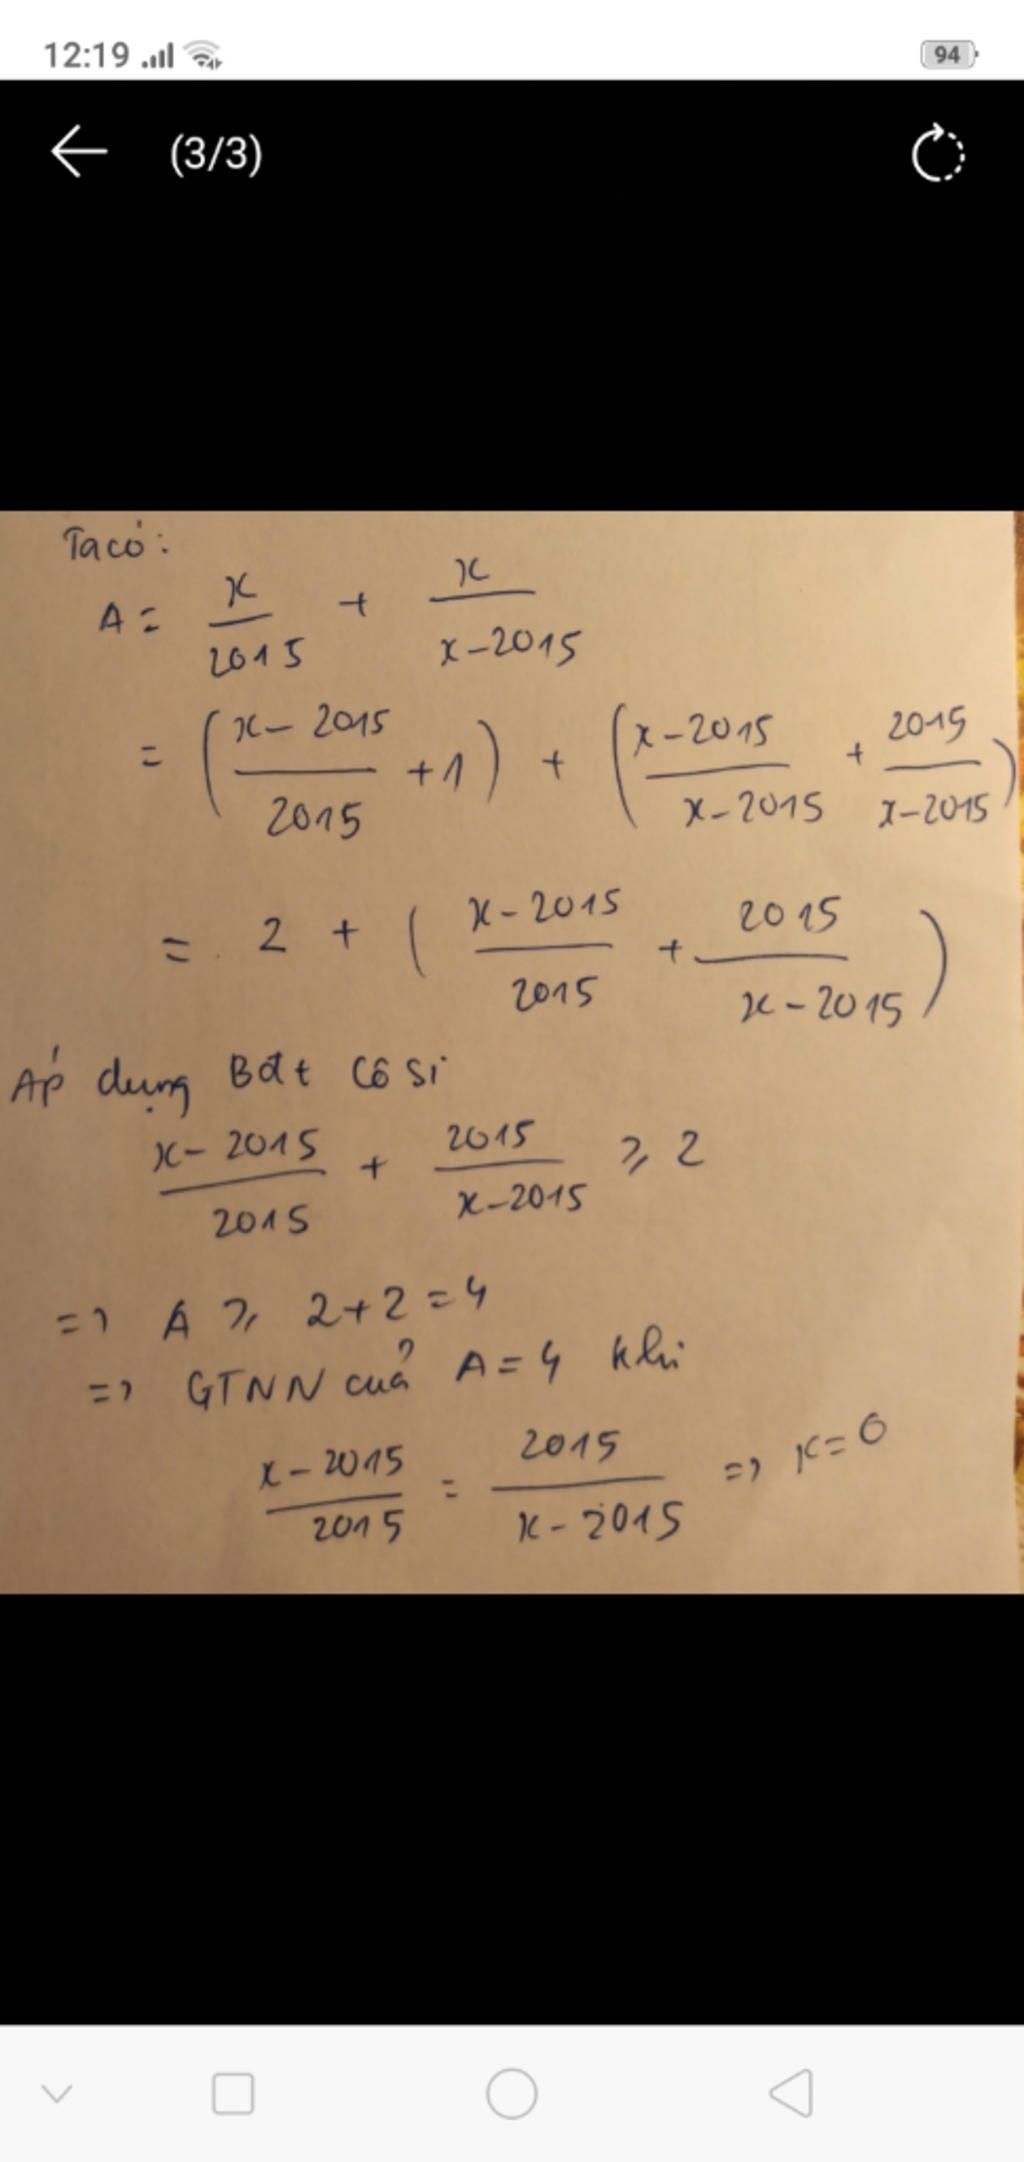 12:19
94
(3/3)
Ta có:
A = x/2015 + x/x-2015
= (x-2015/2015 + 1) + (x-2015/x-2015 + 2015/x-2015)
= 2 + (x-2015/2015 + 2015/x-2015)
Áp dụng Bđt Cô si
x-2015/2015 + 2015/x-2015 ⩾ 2
=> A ⩾ 2+2=4
=> GTNN của A=4 khi
x-2015/2015 = 2015/x-2015 => x=0